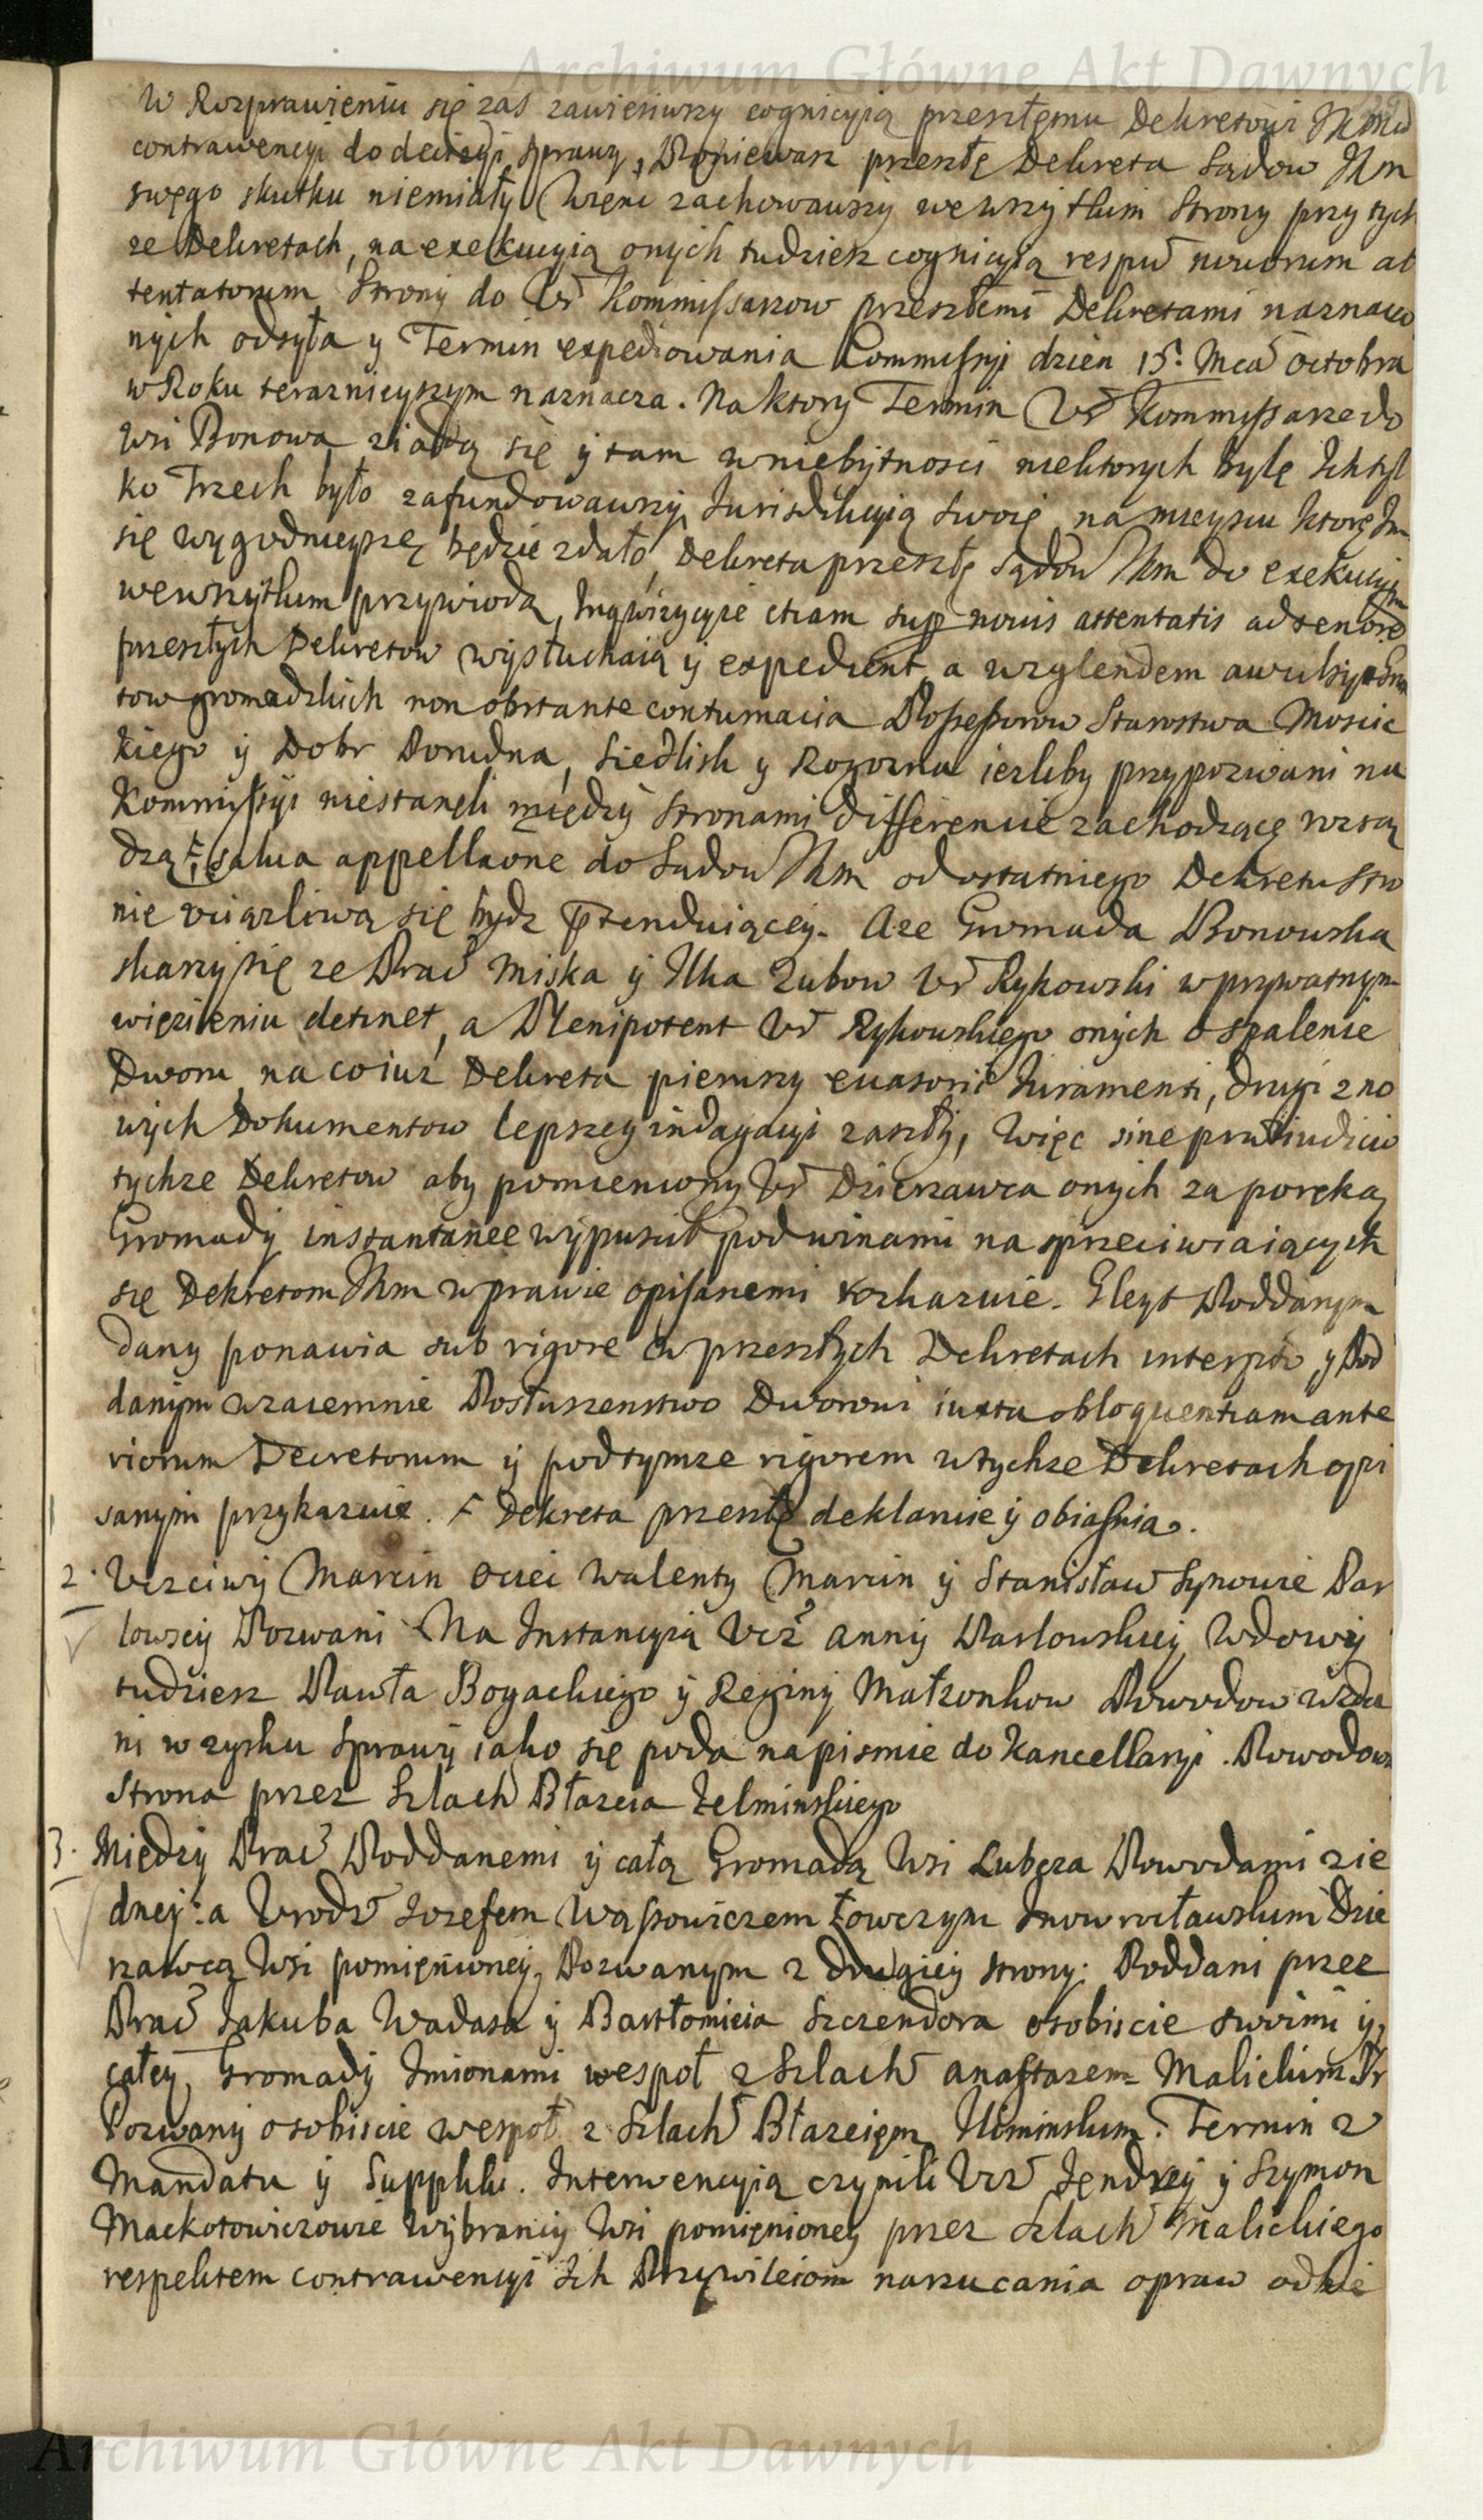 Archiwum Główne Akt Dawnych
W Rozprawieniu się zas zawiesiwszy cognicyią przeszłemu Dekretowi
contrawencyi do decizyi sprawy, Poniewasz przeszłe Dekreta Sądow JKm
swego skutku niemiały Więc zachowawszy wewszytkim Strony przy tych
ze Dekretach, na exekucyią onych tudziesz cognicyią respu nowurum at
tentatorum Strony do Ur Kommissarzow przeszłemi Dekretami naznaczo
nych odsyła y Termin expediowania Commissyi dzien 15. Mca Octobra
w Roku teraznieyszym naznacza. Na ktory Termin Ur Kommissarze do
wsi Bonowa ziadą się y tam w niebytnosci niektorych byle Ich tyl
ko Trzech było zafundowawszy Jurisdikcyią swoię na mieyscu ktore Im
się wygodnieysze będzie zdało, Dekreta przeszłe Sądow JKm do exekucyi
wewszytkim przywiodą, Inqwizycyie etiam sup novis attentatis ad tenorē
przeszłych Dekretow wysłuchaią y expedient, a wzglendem awulsyi Grun
tow gromadzkich non obstante contumacia Possessorow Starostwa Mosciс
kiego y Dobr Porudna, Siedlisk y Rogozna iezliby przypozwani na
Kommissyi niestaneli między Stronami differencie zachodzące rozsą
dzą, salva appellaōne do Sądow JKm od ostatniego Dekretu stro
nie uciązliwą się bydz prtenduiącey. Aze Gromada Bonowska
skarzy się ze Prac Miska y Ilka Zubow Ur Rykowski w prywatnym
więzieniu detinet, a Plenipotent Ur Rykowskiego onych o spalenie
Dworu na co iuz Dekreta pierwszy evasorie Juramenti, drugi z no
wych Dokumentow lepszey indagacyi zaszły, Więc sine praeiudicio
tychze Dekretow aby pomieniony Ur Dzierzawca onych za poręką
Gromady instantanee wypuscił pod winami na sprzeciwiaiących
się Dekretom JKm w prawie opisanemi rozkazuie. Gleyt Poddanym
dany ponawia sub rigore w przeszłych Dekretach interpto y Pod
danym wzaiemnie Posłuszenstwo Dworowi iuxta obloquentiam ante
riorum Decretorum y pod tymze rigorem w tychze Dekretach opi
sanym przykazuie. Dekreta przeszłe deklaruie y obiasnia.
2. Uczciwy Marcin Ociec Walenty Marcin y Stanisław Synowie Par
lowscy Pozwani Na Instancyią Ucz Anny Parlowskiey Wdowy
tudziesz Pawła Bogackiego y Reginy Małzonkow Powodow wzda
ni w zysku sprawy iako się poda na pismie do Kancellaryi. Powodowa
Strona przez Szlach Błazeia Zelminskiego
3. Między Prac Poddanemi y całą Gromadą Wsi Lubcza Powodami z ie
dney: a Urodz Jozefem Wąssowiczem Łowczym Inowrocławskim Dzie
rzawcą Wsi pomienioney, Pozwanym z drugiey strony: Poddani przez
Prac Jakuba Wadasa y Bartłomieia Szczendora osobiscie swoimi y
całey Gromady Imionami wespoł z Szlach Anastazem Malickim Pr
Pozwany osobiscie wespoł z Szlach Błazeiem Ilminskim. Termin z
Mandatu y Suppliki. Interwencyią czynili Ucz Jendrzey y Szymon
Mackotowiczowie Wybrancy Wsi pomienioney przez Szlach Malickiego
respektem contrawencyi Ich Przywileiom narzucania opraw odbie
Archiwum Główne Akt Dawnych